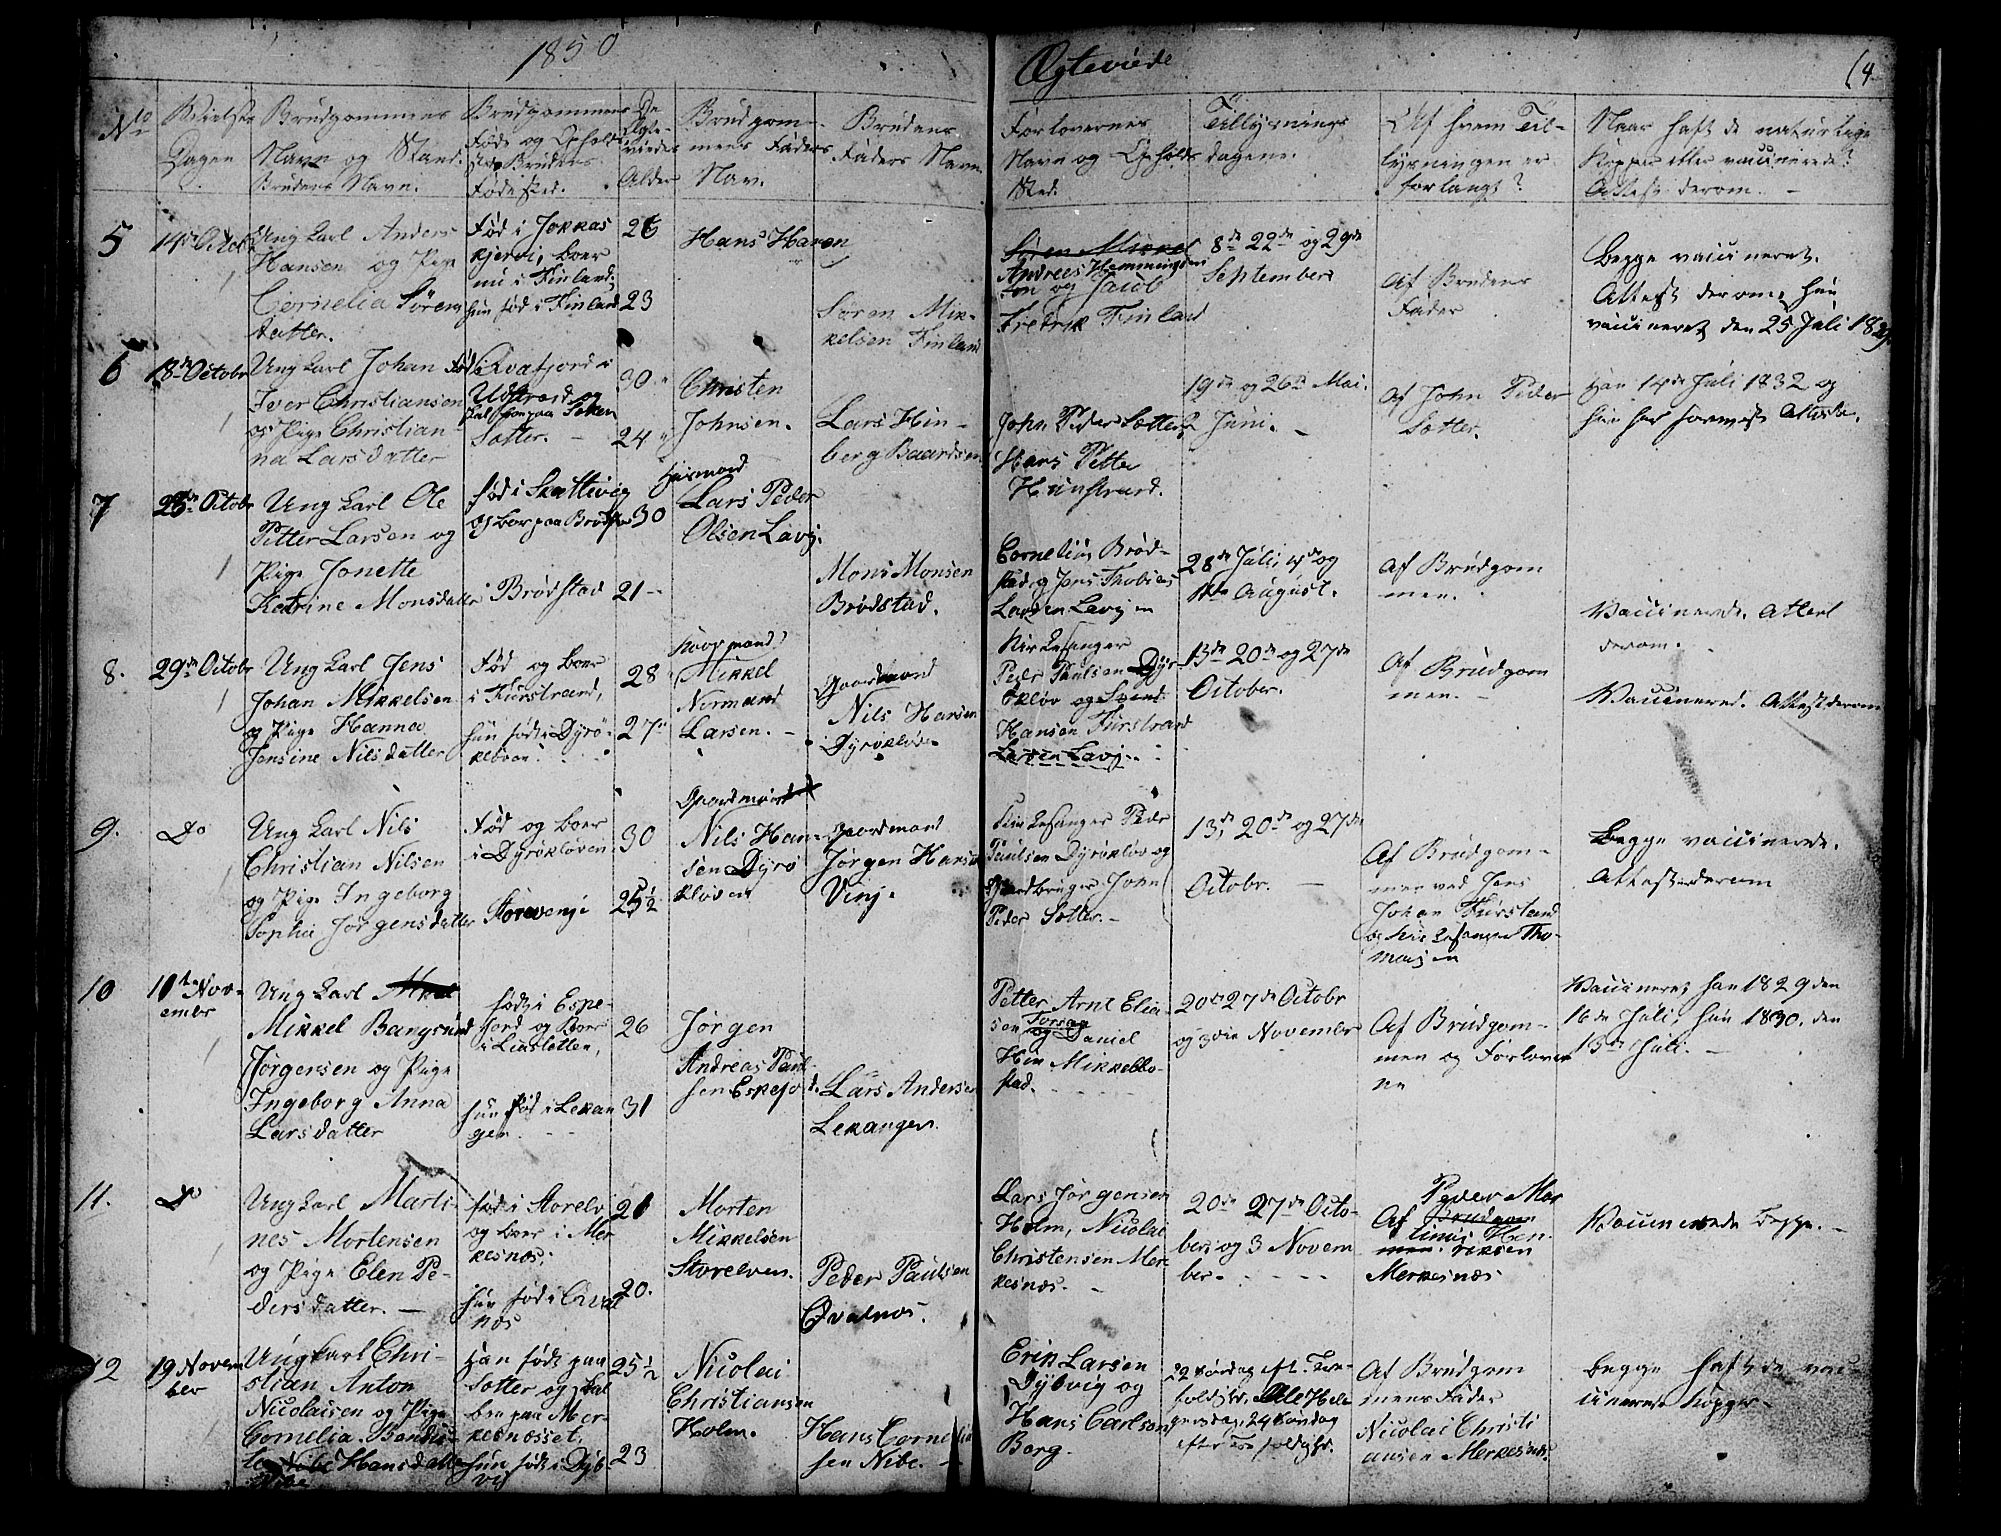 1850
Ægteviede
(4
No
Vielses
Dagen
Brudgommens
Navn og Stand.
Brudens Navn.
Brudgommens
Føde og Opholds
sted Brudens
Fødested.
De
Ægte-
viedes
Alder
Brudgom-
mens Faders
Nav.
Brudens
Faders Navn
Forlovernes
Navn og Opholds
Sted
Tillysnings
dagene.
Af hvem Til-
lysningen er
forlangt?
Naar haft de naturlige
Kopper eller vaccinerede?
Attest derom. -
5
14de Octobr
Ungkarl Anders
Hansen og Pige
Cornelia Sørens
datter.
Fød i Jokkas
kjerri, boer
nu i Finland;
hun fød i Finland
26
23
Hans Haven
Søren Mik-
kelsen Finland
Søren Mikkel
Andreas Hemmingsen
og Jacob
Fredrik Finland
8de 22de og 29de
September
Af Brudens
Fader
Begge vaccineret.
Attest derom, hun
vaccineret den 25 Juli 1829.
6
18de Octobr
Ungkarl Johan
Iver Christiansen
og Pige Christian-
na Larsdatter
Fød Qvæfjord i
Udstrand og
Sætter. -
30
24
Christen
Johnsen.
Lars Hin-
berg Baardsen
John Peder Sætter,
Hans Petter
Hunstrand.
19de og 26de Mai.
2 Juni. -
Af John Peder
Sætter.
Han 14de Juli 1832 og
hun har foreviist Attest.
7
28de Octobr
Ungkarl Ole
Petter Larsen og
Pige Jonette
Katrine Monsdatter
fød i Skattivig
og boer paa Brødstad
i Brødstad
30
21
Huusmand
Lars Peder
Olsen Lavj.
Mons Monsen
Brødstad.
Cornelius Brød-
stad og Jens Thobias
Larsen Lavj
28de Juli, 4de og
11te August.
Af Brudgom
men.
Vaccinerede. Attest
derom.
8.
29de Octobr
Ungkarl Jens
Johan Mikkelsen
og Pige Hanna
Jensine Nilsdatter
Fød og boer
i Furstrand,
hun født i Dyrø-
kloven.
28
27
Mikkel
Normand
Larsen. -
Gaardmand
Nils Hansen
Dyrøkloven
Kirkesanger
Peder Paulsen Dyr-
økløv og Svend
Hansen Furstrand
Larsen Lavj.
13de 20de og 27de
October.
Af Brudgom
men. -
Vaccinered. Attest derom
9.
Do
Ungkarl Nils
Christian Nilsen
og Pige Ingeborg
Sophie Jørgensdatter
Fød og boer
i Dyrøkløven
Storevenje
30
25½
Gaardmand
Nils Han-
sen Dyrø
kloven
Gaardmand
Jørgen Hansen
Vinj.
Kirkesanger Peder
Paulsen Dyrøkløv og
Gaardbruger John
Peder Sætter. -
13de 20de og 27de
Octobr. -
Af Brudgom-
men ved Jens
Johan Furstrand
og Kirkesanger Tho-
masen
Begge vaccinerede.
Attest derom
10
11te Nov-
embr
Ungkarl Mikkel
Mikkel Bangsund
Jørgensen og Pige
Ingeborg Anna
Larsdatter
født i Espe-
fjord og boer
i Liasletten,
hun fød i Lekan
gen.
26
31
Jørgen
Andreas Paul-
sen Eskefjord.
Lars Andersen
Lekangen.
Petter Arnt Elia-
sen
og Daniel
Mikkelbo-
stad.
20de 27de Octobr
og 3die November
Af Brudgom-
men og Forlover
ne
Vaccineret, han 1829 den
16de Juli, hun 1830. den
13de Juli. -
11.
Do
Ungkarl Marti-
nes Mortensen
og Pige Elen Pe-
dersdatter. -
fød i Storelv
og boer i Mer
kesnæs;
hun fød i Qval
næs
21
20.
Morten
Mikkelsen
Storelven.
Peder Paulsen
Qvalnæs.
Lars Jørgensen
Holm, Nicolai
Christensen Mer-
kesnæs. -
20de 27de Octo-
ber og 3 Novem
ber.
Peder Mar
Af Brudgom
tinus Hen-
men. riksen
Merkesnæs
Vaccinerede Begge. -
12
19 Novem
ber
Ungkarl Chri-
stian Anton
Nicolaisen og Pige
Cornelia Bendik-
Hansdatter
Nibe
Han født paa
Sætter og skal
boe paa Mer-
kesnæsset,
hun født i Dyb-
vig
25½
23
Nicolai
Christiansen
Holm.
Hans Corneliu
sen Nibe. -
Erik Larsen
Dybvig og
Hans Carlsen
Borg.
22 Søndag eft. Tre-
foldighed, Alle Hel-
gensdag, 24 Søndag
efter Trefoldighd.
Af Brudgom
mens Fader
Nicolai Christi
ansen Merkesnæs.
Begge haft de vac-
cinerede Kopper -